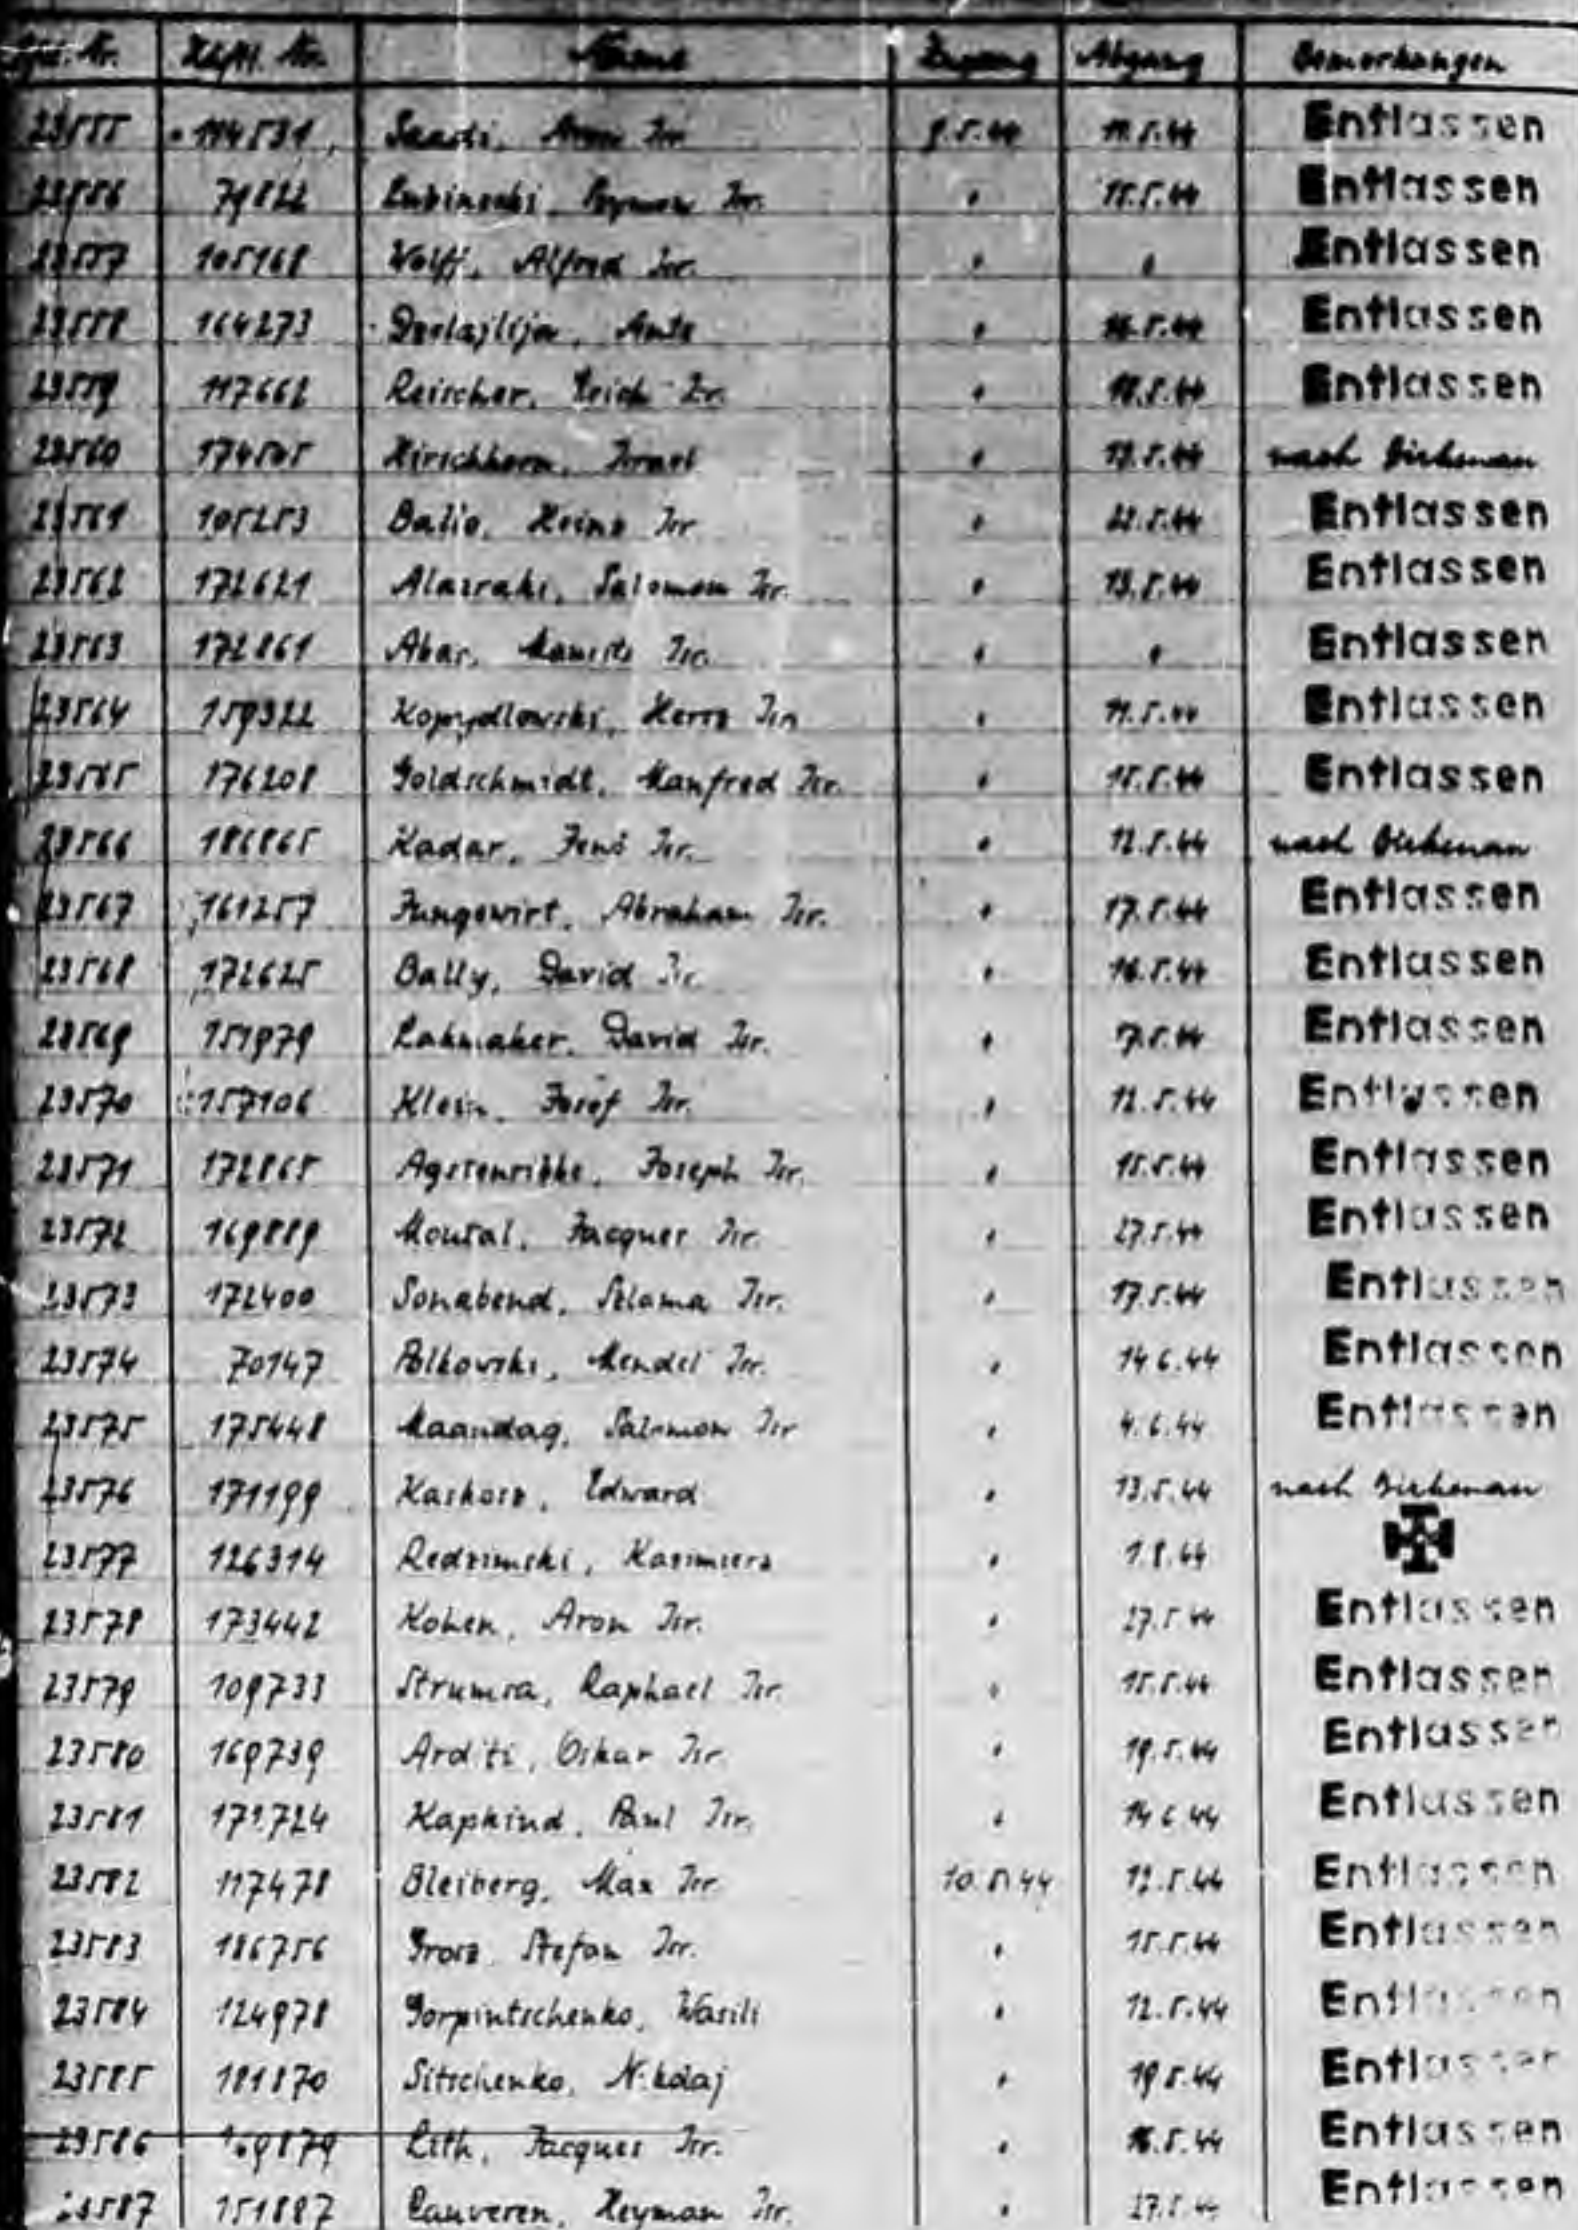 Lfd. Nr. Häftl. Nr. Name Zugang Abgang Bemerkungen
23555 114531 Saadi, Aron Isr. 9.5.44 11.5.44 Entlassen
23556 79822 Lubinski, Szymon Isr. " 15.5.44 Entlassen
23557 105168 Wolff, Alfred Isr. " " Entlassen
23558 164273 Ante " 16.5.44 Entlassen
23559 117662 Reischer, Erich Isr. " 18.5.44 Entlassen
23560 174505 Hirschhorn, Israel " 12.5.44 nach Birkenau
23561 105253 Heinz Isr. " 22.5.44 Entlassen
23562 172621 Alazraki, Salomon Isr. " 13.5.44 Entlassen
23563 172861 Abar, Isr. " " Entlassen
23564 159322 Kopydlowski, Hersz Isr. " 11.5.44 Entlassen
23565 176208 Goldschmidt, Manfred Isr. " 15.5.44 Entlassen
23566 186865 Kadar, Jenö Isr. " 12.5.44 nach Birkenau
23567 161257 Jungewirt, Abraham Isr. " 17.5.44 Entlassen
23568 172625 Bally, David Isr. " 16.5.44 Entlassen
23569 151979 David Isr. " 17.5.44 Entlassen
23570 157106 Klein, Josef Isr. " 12.5.44 Entlassen
23571 172865 Joseph Isr. " 15.5.44 Entlassen
23572 169889 Jacques Isr. " 27.5.44 Entlassen
23573 172400 Sonabend, Szlama Isr. " 17.5.44 Entlassen
23574 70147 Polkowski, Mendel Isr. " 14.6.44 Entlassen
23575 175448 Maandag, Salomon Isr. " 4.6.44 Entlassen
23576 171199 Kaskosz, Edward " 13.5.44 nach Birkenau
23577 126314 Redzimski, Kazimierz " 1.8.44
23578 173442 Kohen, Aron Isr. " 27.5.44 Entlassen
23579 109733 Strumza, Raphael Isr. " 15.5.44 Entlassen
23580 169739 Arditi, Oskar Isr. " 19.5.44 Entlassen
23581 172724 Kapkind, Paul Isr. " 14.6.44 Entlassen
23582 117478 Bleiberg, Max Isr. 10.5.44 12.5.44 Entlassen
23583 186756 Grosz, Stefan Isr. " 15.5.44 Entlassen
23584 124978 Gorpintschenko, Wasili " 12.5.44 Entlassen
23585 181870 Sitschenko, Nikolaj " 19.5.44 Entlassen
23586 169879 Lith, Jacques Isr. " 16.5.44 Entlassen
23587 151887 Lauveren, Heyman Isr. " 27.5.44 Entlassen